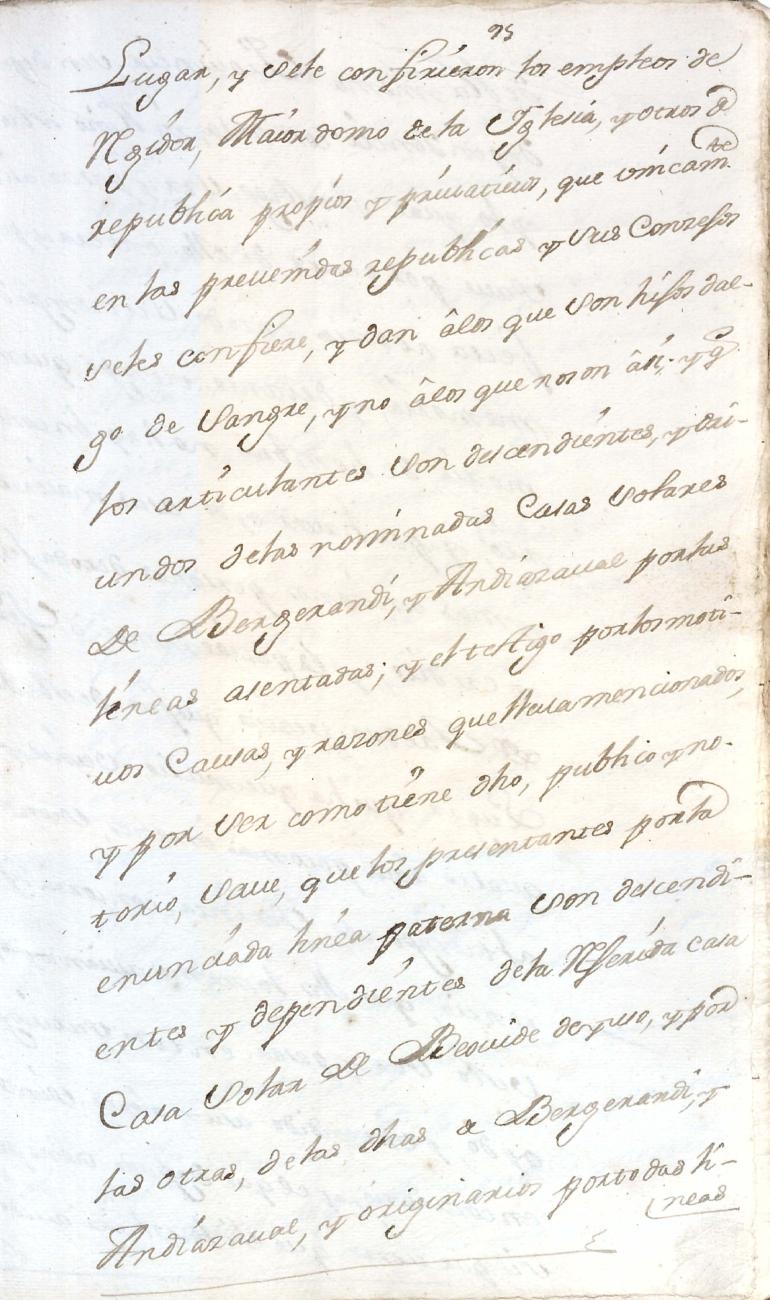 95
Lugar, y sele confirieron los empleos de
Regidor, Maiordomo de la Yglesia, y otros de
republica propios y priuatiuos, que vnicamte
en las preuenidas republicas y sus Consejos
seles confiere, y dan âlos que son hijos dal-
go de Sangre, y no âlos que noson âsi; y q
los articulantes son descendientes, y ori-
undos delas nominadas Casas Solares
de Bergerandi, y Andiaraual por las
lineas asentadas; y el testigo por los moti-
uos Causas, y razones que lleua mencionados,
y por ser como tiene dho, publico y no-
torio, saue, que los presentantes por la
enunciada linea paterna son descendi-
entes y dependientes dela Referida casa
Casa Solar de Beouide deyuso, y por
las otras, delas dhas de Bergerandi, y
Andiaraual, y originarios por todas li-
neas